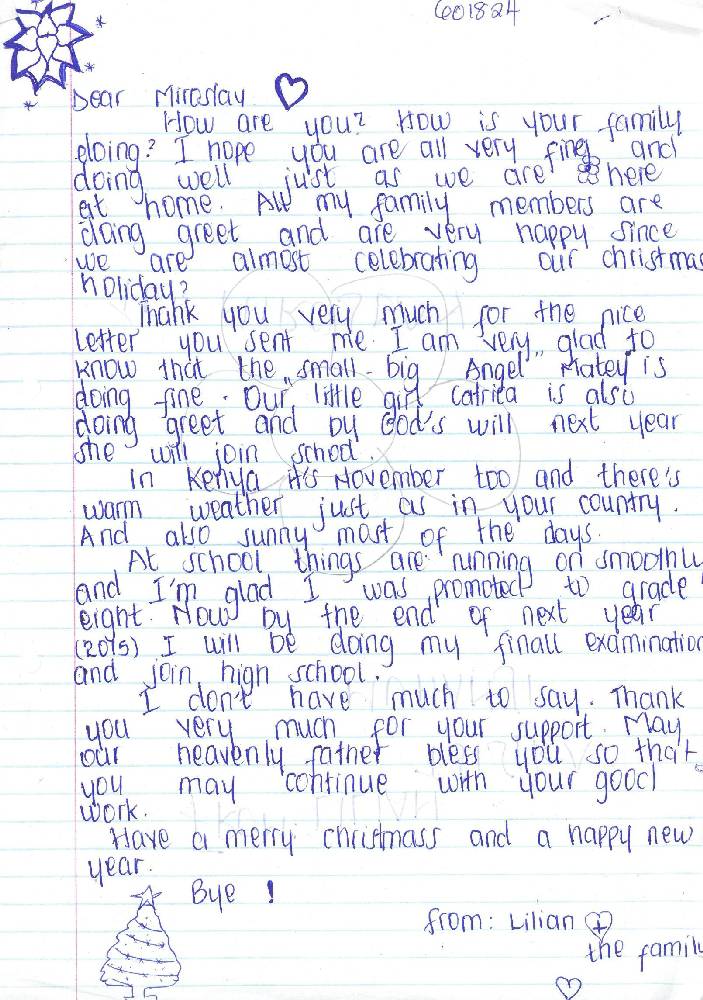 601824
Dear Miroslav
How are you? How is your family
doing? I hope you are all very fine and
doing well just as we are here
at home. All my family members are
doing greet and are very happy since
we are almost celebrating our christmas
holiday?
Thank you very much for the nice
letter you sent me. I am very glad to
know that the „small - big Angel" Matey is
doing fine. Our little girl Catrita is also
doing greet and by God's will next year
she will join school.
In Kenya it's November too and there's
warm weather just as in your country.
And also sunny most of the days.
At school things are running on smoothly
and I'm glad I was promoted to grade
eight. Now by the end of next year
(2015) I will be doing my finall examination
and join high school.
I don't have much to say. Thank
you very much for your support. May
our heavenly father bless you so that
you may continue with your good
work.
Have a merry christmass and a happy new
year.
Bye !
from: Lilian +
the family